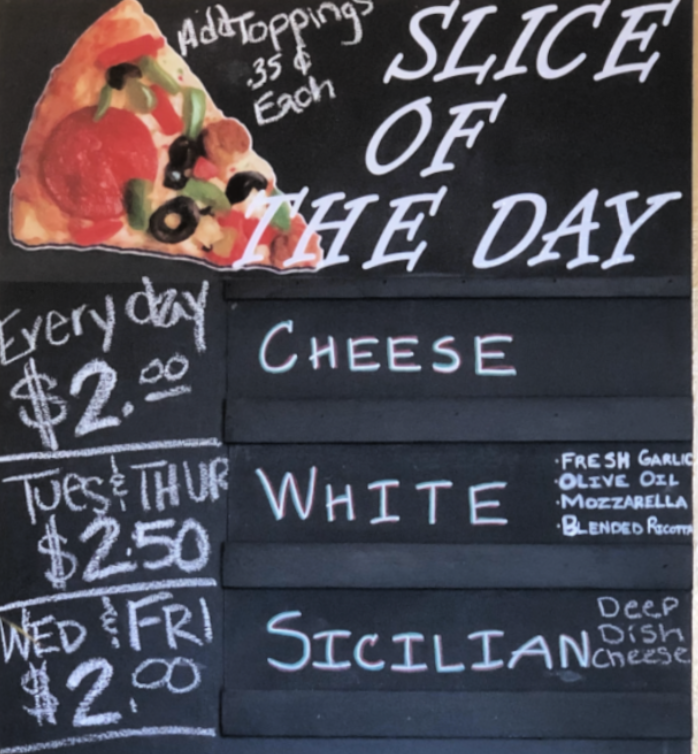 Add Toppings
.35 ¢
Each
SLICE
OF
THE DAY
Every day
$2.00
CHEESE
TUES & THUR
$2.50
WHITE
·FRESH GARLIC
·OLIVE OIL
·MOZZARELLA
·BLENDED RICOTTA
WED & FRI
$2.00
SICILIAN
Deep
Dish
Cheese